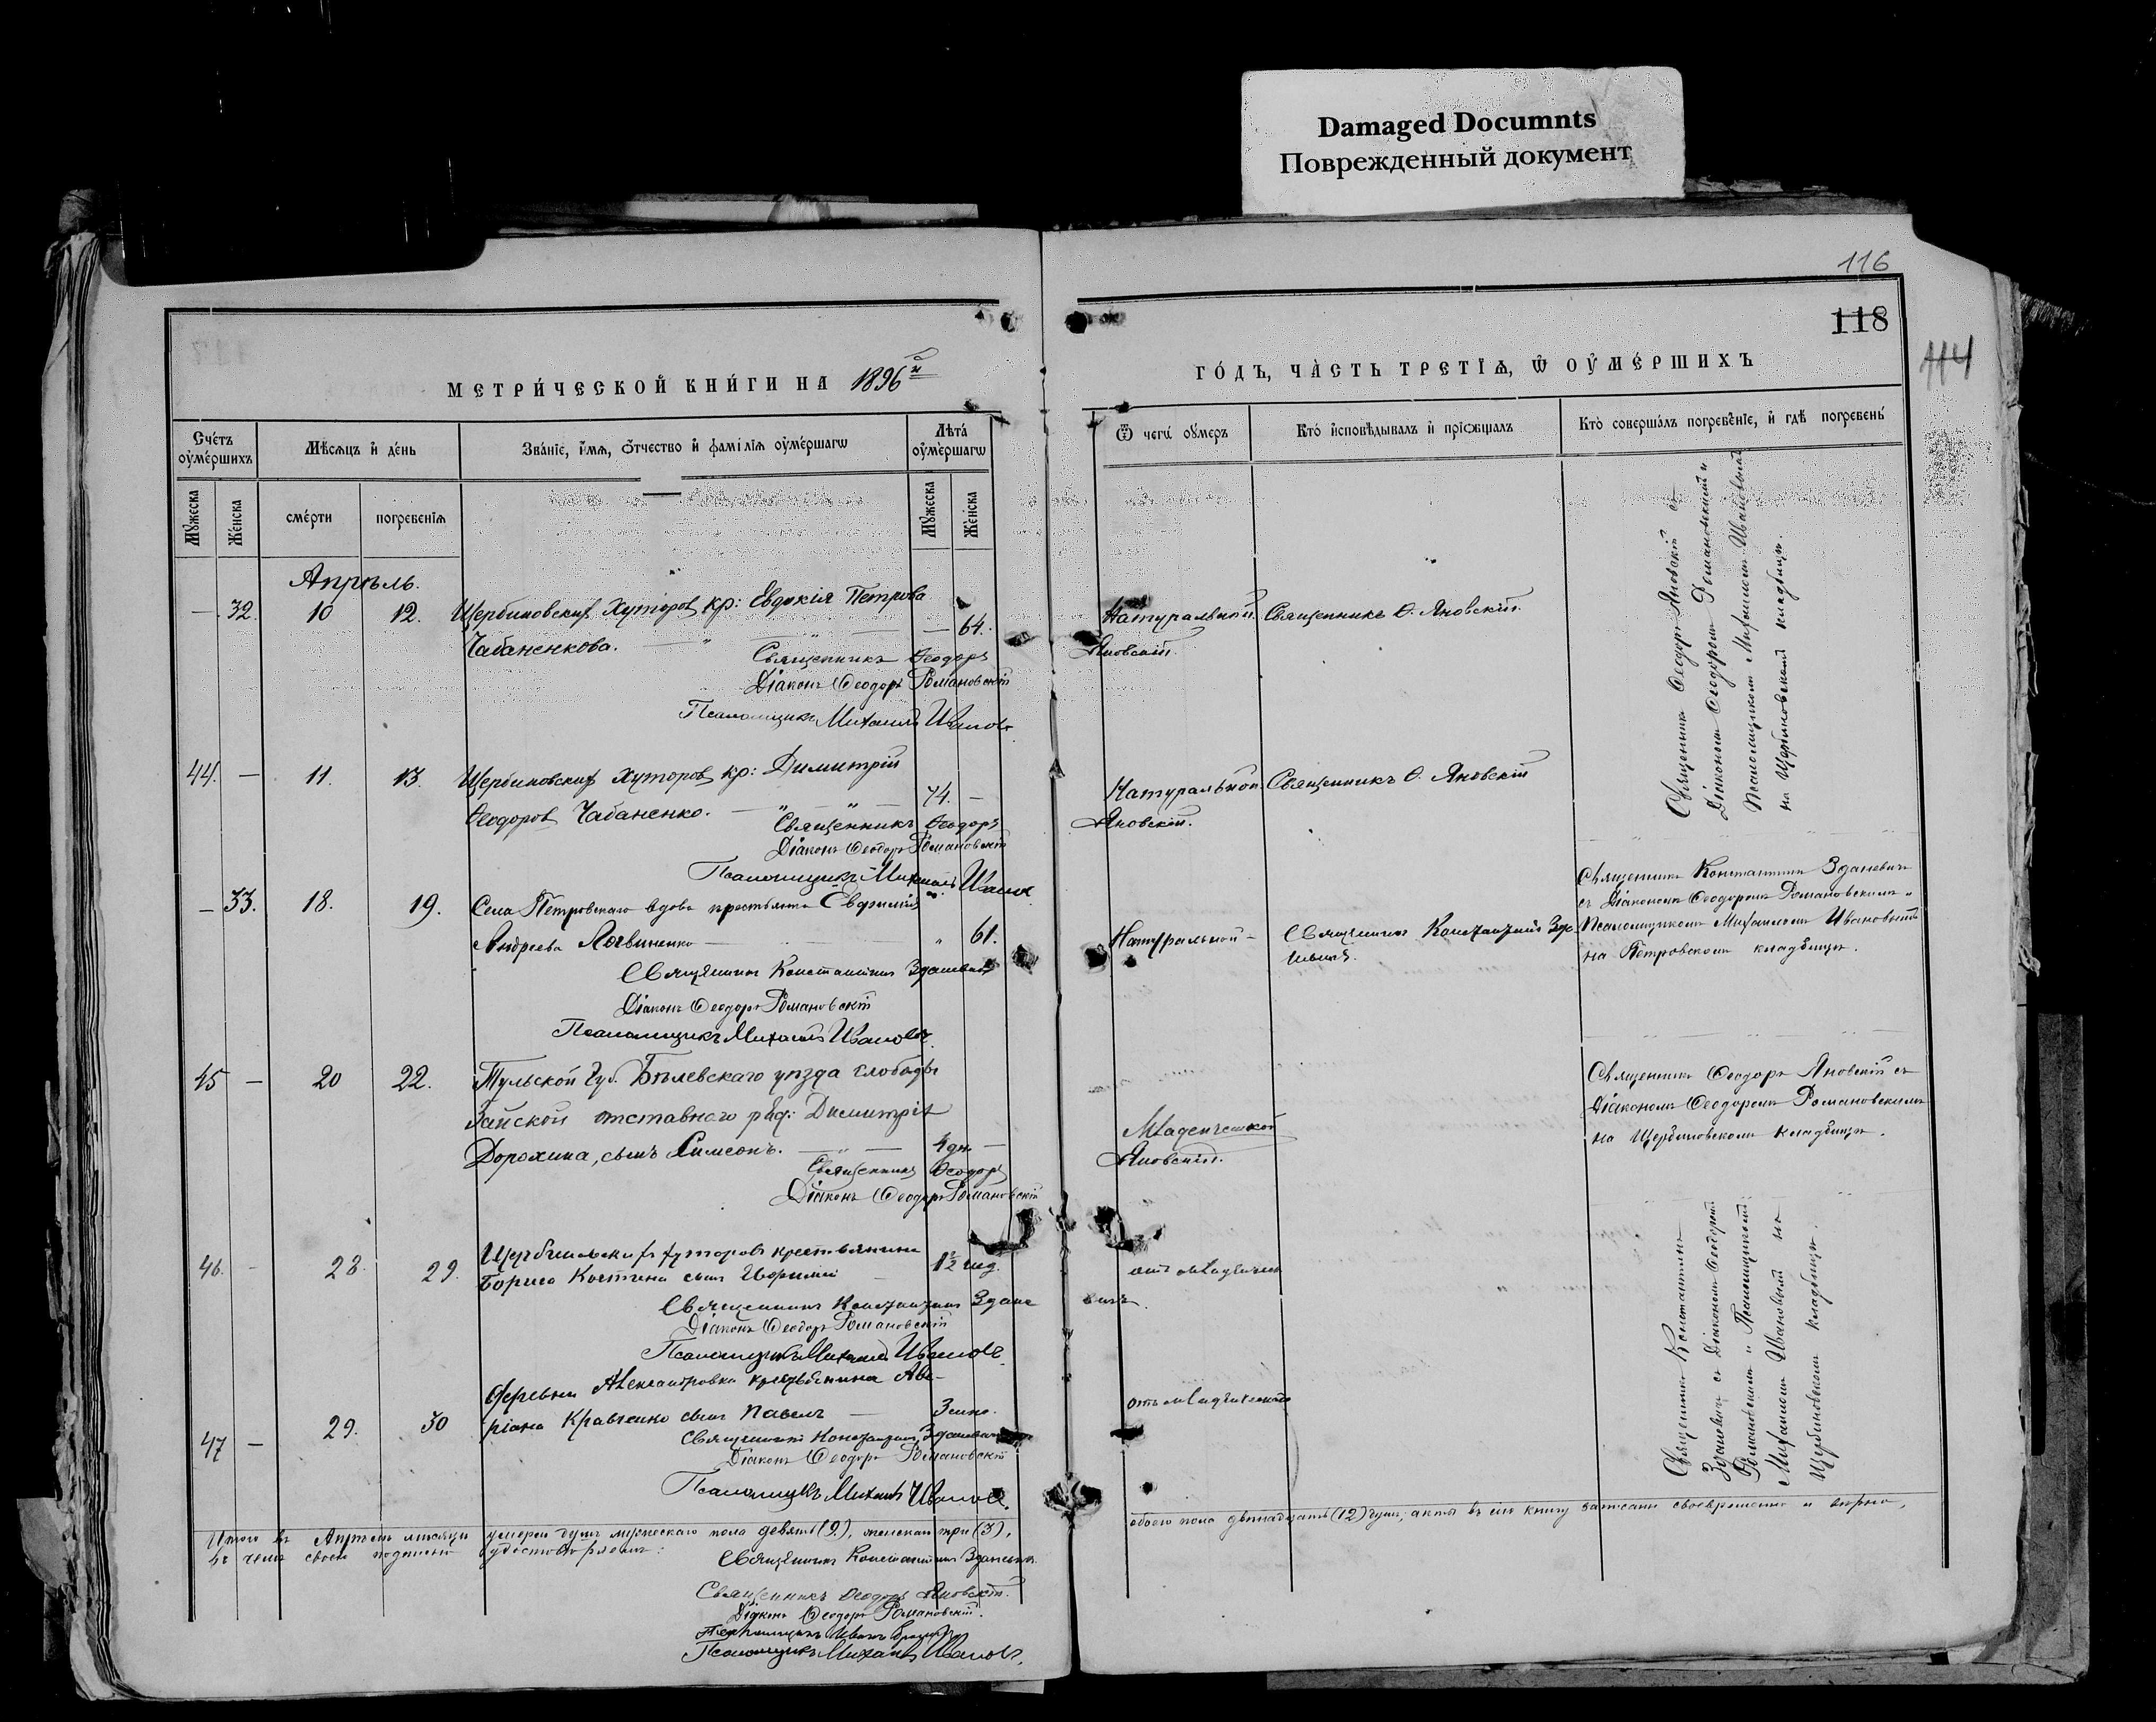 Damaged Documnts
Поврежденный документ
116
118
114
МЕТРИ́ЧЕСКОЙ КНИ́ГИ НА 1896й
ГО́ДЪ, ЧА́СТЬ ТРЕТІѦ, Ѿ ОУ҆МЕ́РШИХЪ
Сче́тъ оу҆ме́ршихъ
Мѣ́сяцъ и҆ де́нь
Зва́ніе, и҆́мѧ, ѻ҆́тчество и҆ фамі́лія оу҆ме́ршагѡ
Лѣ́та оу҆ме́ршагѡ
Ѿ чегѡ̀ оу҆́меръ
Кто̀ и҆сповѣ́дывалъ и҆ прїѡбща́лъ
Кто̀ соверша́лъ погребе́ніе, и҆ гдѣ̀ погребены̀
Мꙋ́жеска
Же́нска
сме́рти
погребе́нія
Мꙋ́жеска
Же́нска
Апрѣль.
— 32. 10 12. Щербиновскихъ Хуторовъ кр: Евдокія Петрова
Чабаненкова. — 64.
Священникъ Ѳеодоръ Яновскій.
Діаконъ Ѳеодоръ Романовскій
Псаломщикъ Михаилъ Ивановъ
Натуральной. Священникъ Ѳ. Яновскій.
Священникъ Ѳеодоръ Яновскій съ
Діакономъ Ѳеодоромъ Романовскимъ и
Псаломщикомъ Михаиломъ Ивановымъ
на Щербиновскомъ кладбищѣ.
44. — 11. 13. Щербиновскихъ Хуторовъ кр: Димитрій
Ѳеодоровъ Чабаненко. 74. —
Священникъ Ѳеодоръ Яновскій.
Діаконъ Ѳеодоръ Романовскій
Псаломщикъ Михаилъ Ивановъ
Натуральной. Священникъ Ѳ. Яновскій
— 33. 18. 19. Села Петровскаго вдова крестьянка Евфимія
Андреева Логвиненко — 61.
Священникъ Константинъ Зданевичъ
Діаконъ Ѳеодоръ Романовскій
Псаломщикъ Михаилъ Ивановъ.
Натуральной — Священникъ Константинъ Зда-
невичъ.
Священникъ Константинъ Зданевичъ
съ Діакономъ Ѳеодоромъ Романовскимъ и
Псаломщикомъ Михаиломъ Ивановымъ
на Петровскомъ кладбищѣ.
45 — 20 22. Тульской Губ. Бѣлевскаго уѣзда слободы
отставного ряд: Димитрія
Дорохина, сынъ Симеонъ. 4 дн. —
Священникъ Ѳеодоръ Яновскій.
Діаконъ Ѳеодоръ Романовскій
Младенческой
Священникъ Ѳеодоръ Яновскій съ
Діакономъ Ѳеодоромъ Романовскимъ
на Щербиновскомъ кладбищѣ.
46. - 28. 29. Щербиновскихъ хуторовъ крестьянина
Бориса Костина сынъ 1½ год.
Священникъ Константинъ Здане вичъ.
Діаконъ Ѳеодоръ Романовскій
Псаломщикъ Михаилъ Ивановъ.
отъ младенческ
Священникъ Константинъ
Зданевичъ съ Діакономъ Ѳеодоромъ
Романовскимъ и Псаломщикомъ
Михаиломъ Ивановымъ на
Щербиновскомъ кладбищѣ.
47 — 29. 30 деревни Александровки крестьянина Аве-
ріана Кравченко сынъ Павелъ —
Священникъ Константинъ Зданевичъ
Діаконъ Ѳеодоръ Романовскій
Псаломщикъ Михаилъ Ивановъ.
отъ младенческой
Итого въ Апрѣлѣ мѣсяцѣ умерло душъ мужескаго пола девять (9), женскаго три (3), обоего пола двѣнадцать (12) душъ, акты въ сію книгу записаны своевременно и вѣрно,
въ чемъ своею подписью удостовѣряемъ:
Священникъ Константинъ Зданевичъ
Священникъ Ѳеодоръ Яновскій.
Діаконъ Ѳеодоръ Романовскій.
Псаломщикъ Иванъ
Псаломщикъ Михаилъ Ивановъ.